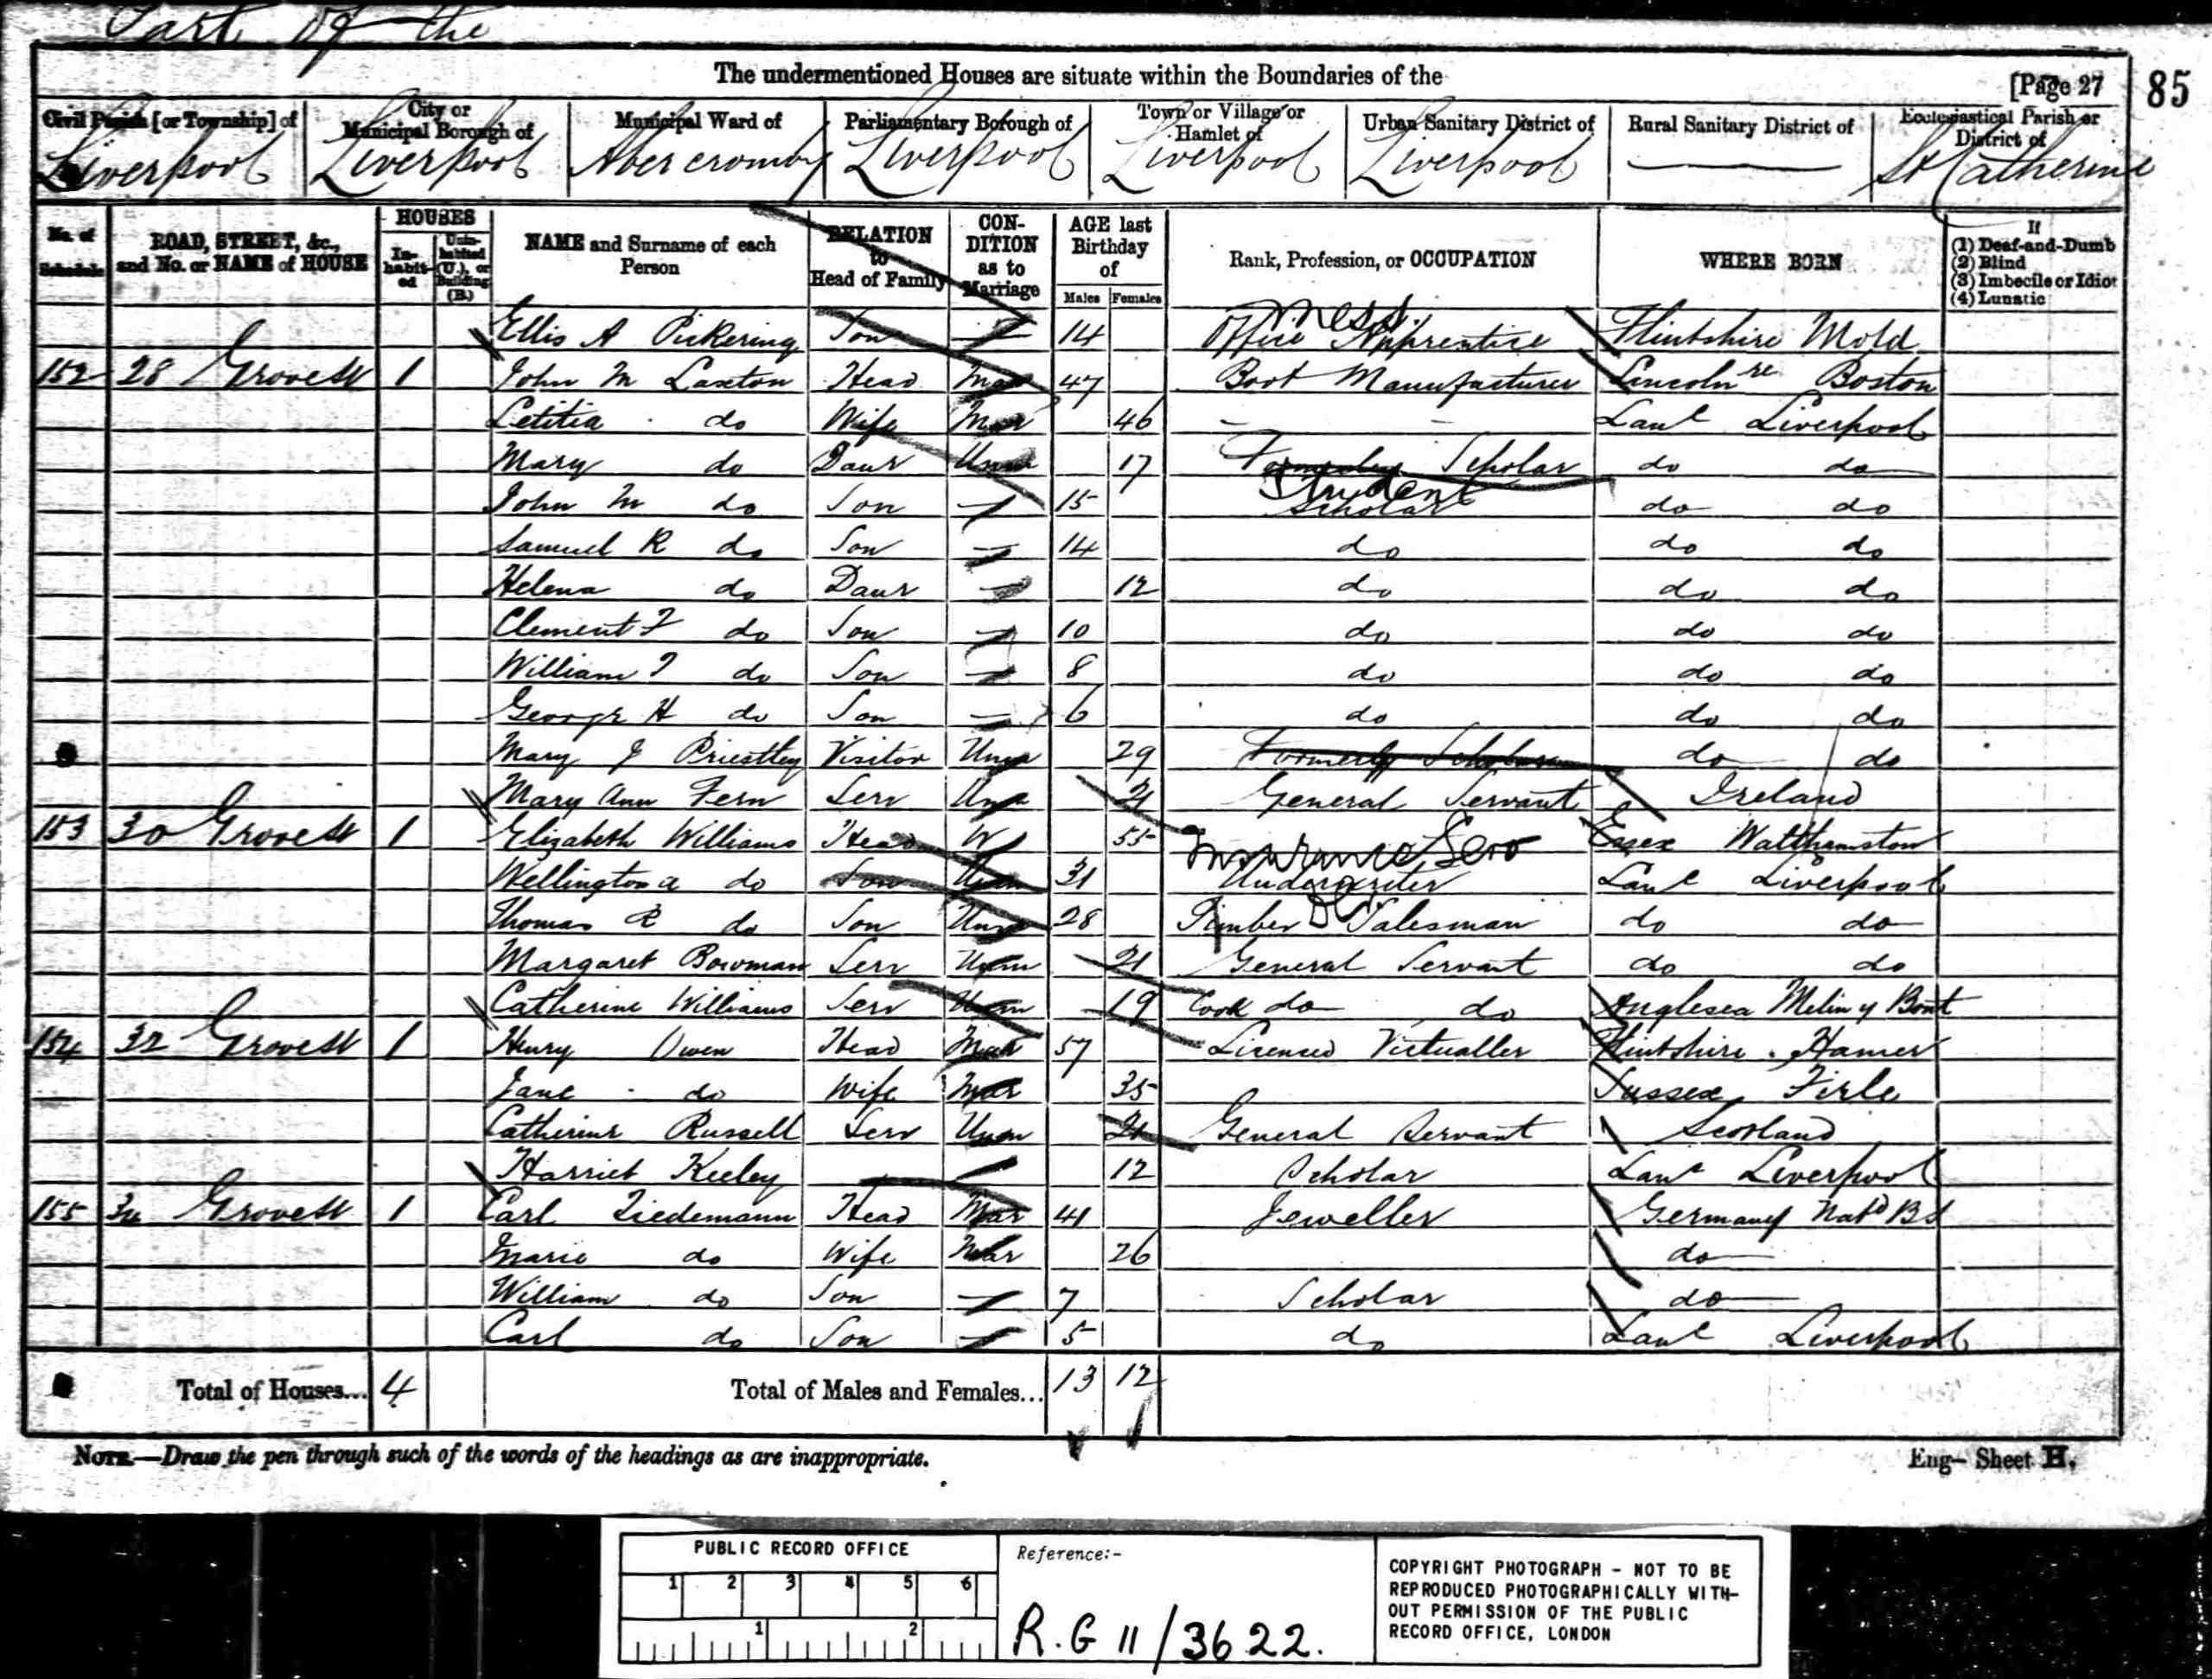 Part of the
The undermentioned Houses are situate within the Boundaries of the
[Page 27
85
Civil Parish [or Township] of
City or Municipal Borough of
Municipal Ward of
Parliamentary Borough of
Town or Village or Hamlet of
Urban Sanitary District of
Rural Sanitary District of
Ecclesiastical Parish or District of
Liverpool Liverpool Abercromby Liverpool Liverpool Liverpool St Catherine
No. of Schedule
ROAD, STREET, &c., and No. or NAME of HOUSE
HOUSES
In-habit-ed
Unin-habited (U.), or Building (B.)
NAME and Surname of each Person
RELATION to Head of Family
CON-DITION as to Marriage
AGE last Birthday of
Males Females
Rank, Profession, or OCCUPATION
WHERE BORN
If
(1) Deaf-and-Dumb
(2) Blind
(3) Imbecile or Idiot
(4) Lunatic
Mess.
Ellis A Pickering Son 14 Office Apprentice Flintshire Mold
152 28 Grove St 1 John M Laxton Head Mar 47 Boot Manufacturer Lincolnre Boston
Letitia do Wife Mar 46 Lanc Liverpool
Mary do Daur Unm 17 Formerly Scholar do do
Student
John M do Son 15 Scholar do do
Samuel R do Son 14 do do do
Helena do Daur 12 do do do
Clement F do Son 10 do do do
William do Son 8 do do do
George H do Son 6 do do do
Mary J Priestley Visitor Unm 29 Formerly do do
Mary Ann Fern Serv Unm 21 General Servant Ireland
153 30 Grove St 1 Elizabeth Williams Head W 55 Essex Walthamstow
Insurance
Wellington a do Son Unm 31 Underwriter Lanc Liverpool
Thomas R do Son Unm 28 Timber Salesman do do
Margaret Bowman Serv Unm 21 General Servant do do
Catherine Williams Serv Unm 19 Cook do do Anglesea Melin y Bont
154 32 Grove St 1 Henry Owen Head Mar 57 Licensed Victualler Flintshire Hamer
Jane do Wife Mar 35 Sussex Firle
Catherine Russell Serv Unm 21 General Servant Scotland
Harriet Keeley 12 Scholar Lanc Liverpool
155 34 Grove St 1 Carl Tiedemann Head Mar 41 Jeweller Germany Natd BS
Marie do Wife Mar 26 do
William do Son 7 Scholar do
Carl do Son 5 do Lanc Liverpool
Total of Houses... 4 Total of Males and Females... 13 12
NOTE.—Draw the pen through such of the words of the headings as are inappropriate.
Eng— Sheet H.
PUBLIC RECORD OFFICE
1 2 3 4 5 6
1 2
Reference:-
R.G 11/3622.
COPYRIGHT PHOTOGRAPH - NOT TO BE
REPRODUCED PHOTOGRAPHICALLY WITH-
OUT PERMISSION OF THE PUBLIC
RECORD OFFICE, LONDON